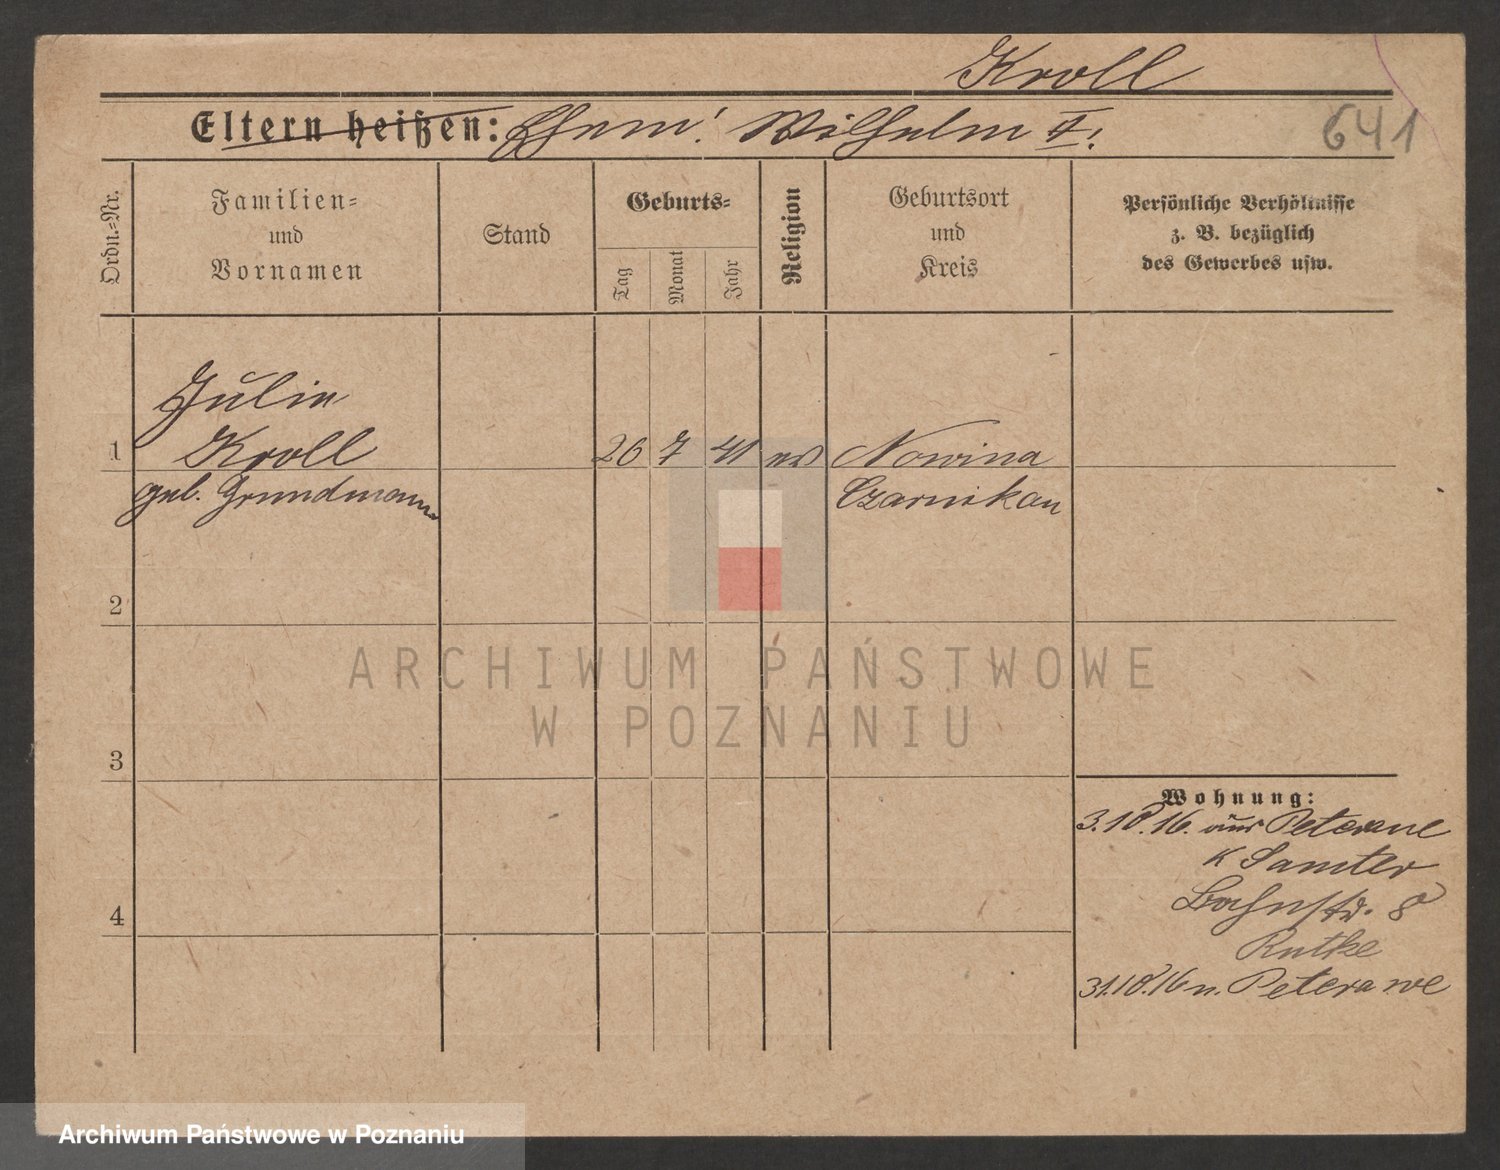 Kroll
Eltern heißen: Ehem: Wilhelm †.
641
Ordn.-Nr.
Familien-
und
Vornamen
Stand
Geburts-
Tag
Monat
Jahr
Religion
Geburtsort
und
Kreis
Persönliche Verhältnisse
z. B. bezüglich
des Gewerbes usw.
Julie
1 Kroll 26 7 41 ev Nowina
geb. Grundmann Czarnikau
2
3
4
Wohnung:
3.10.16. aus Peterawe
K Samter
Bahnstr. 8
Rutke
31.10.16 n. Peterawe
ARCHIWUM PAŃSTWOWE
W POZNANIU
Archiwum Państwowe w Poznaniu